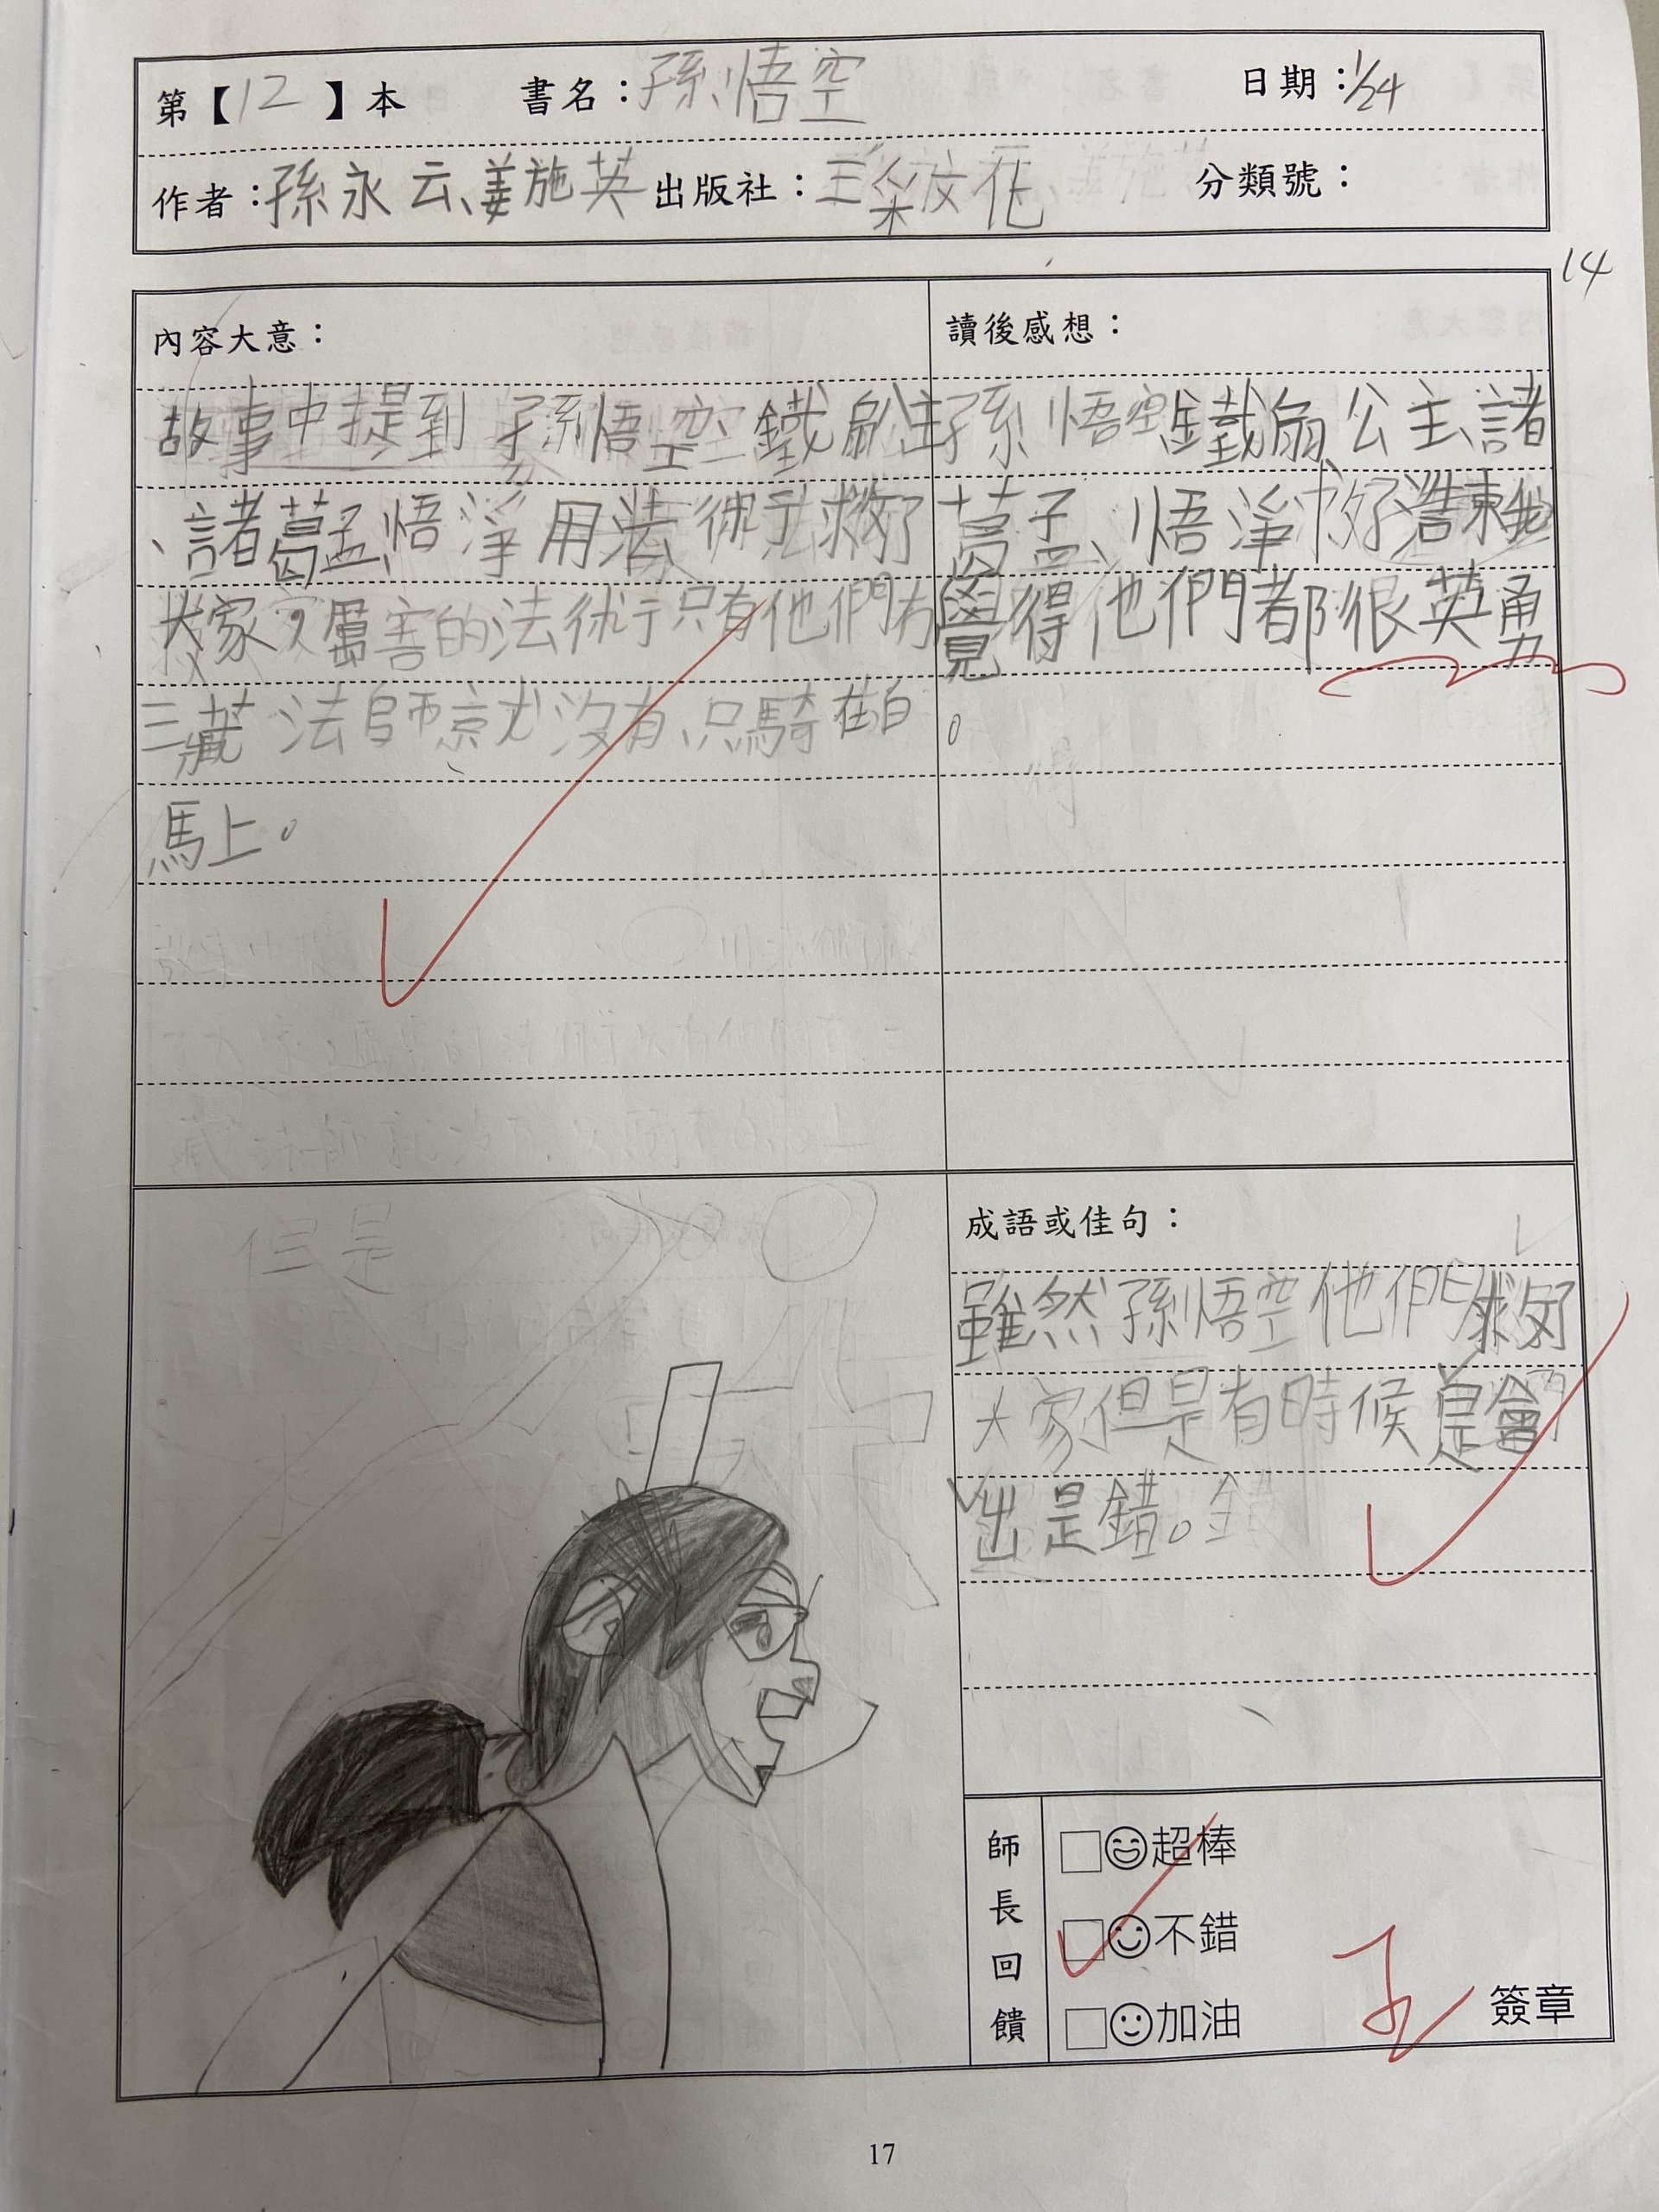 第【12】本 書名：孫悟空 日期：1/24
作者：孫永云、姜施英 出版社：三采文化 分類號：
14
內容大意：
故事中提到孫悟空鐵扇主
、諸葛孟、悟淨用法術救了
大家，厲害的法術只有他們有
三藏法師就沒有，只騎在白
馬上。
讀後感想：
孫悟空、鐵扇公主、諸
葛孟、悟淨
覺得他們都很英勇
。
但是
成語或佳句：
雖然孫悟空他們救了
大家但是有時候是會
出是錯。
師長回饋
超棒
不錯
加油
簽章
17